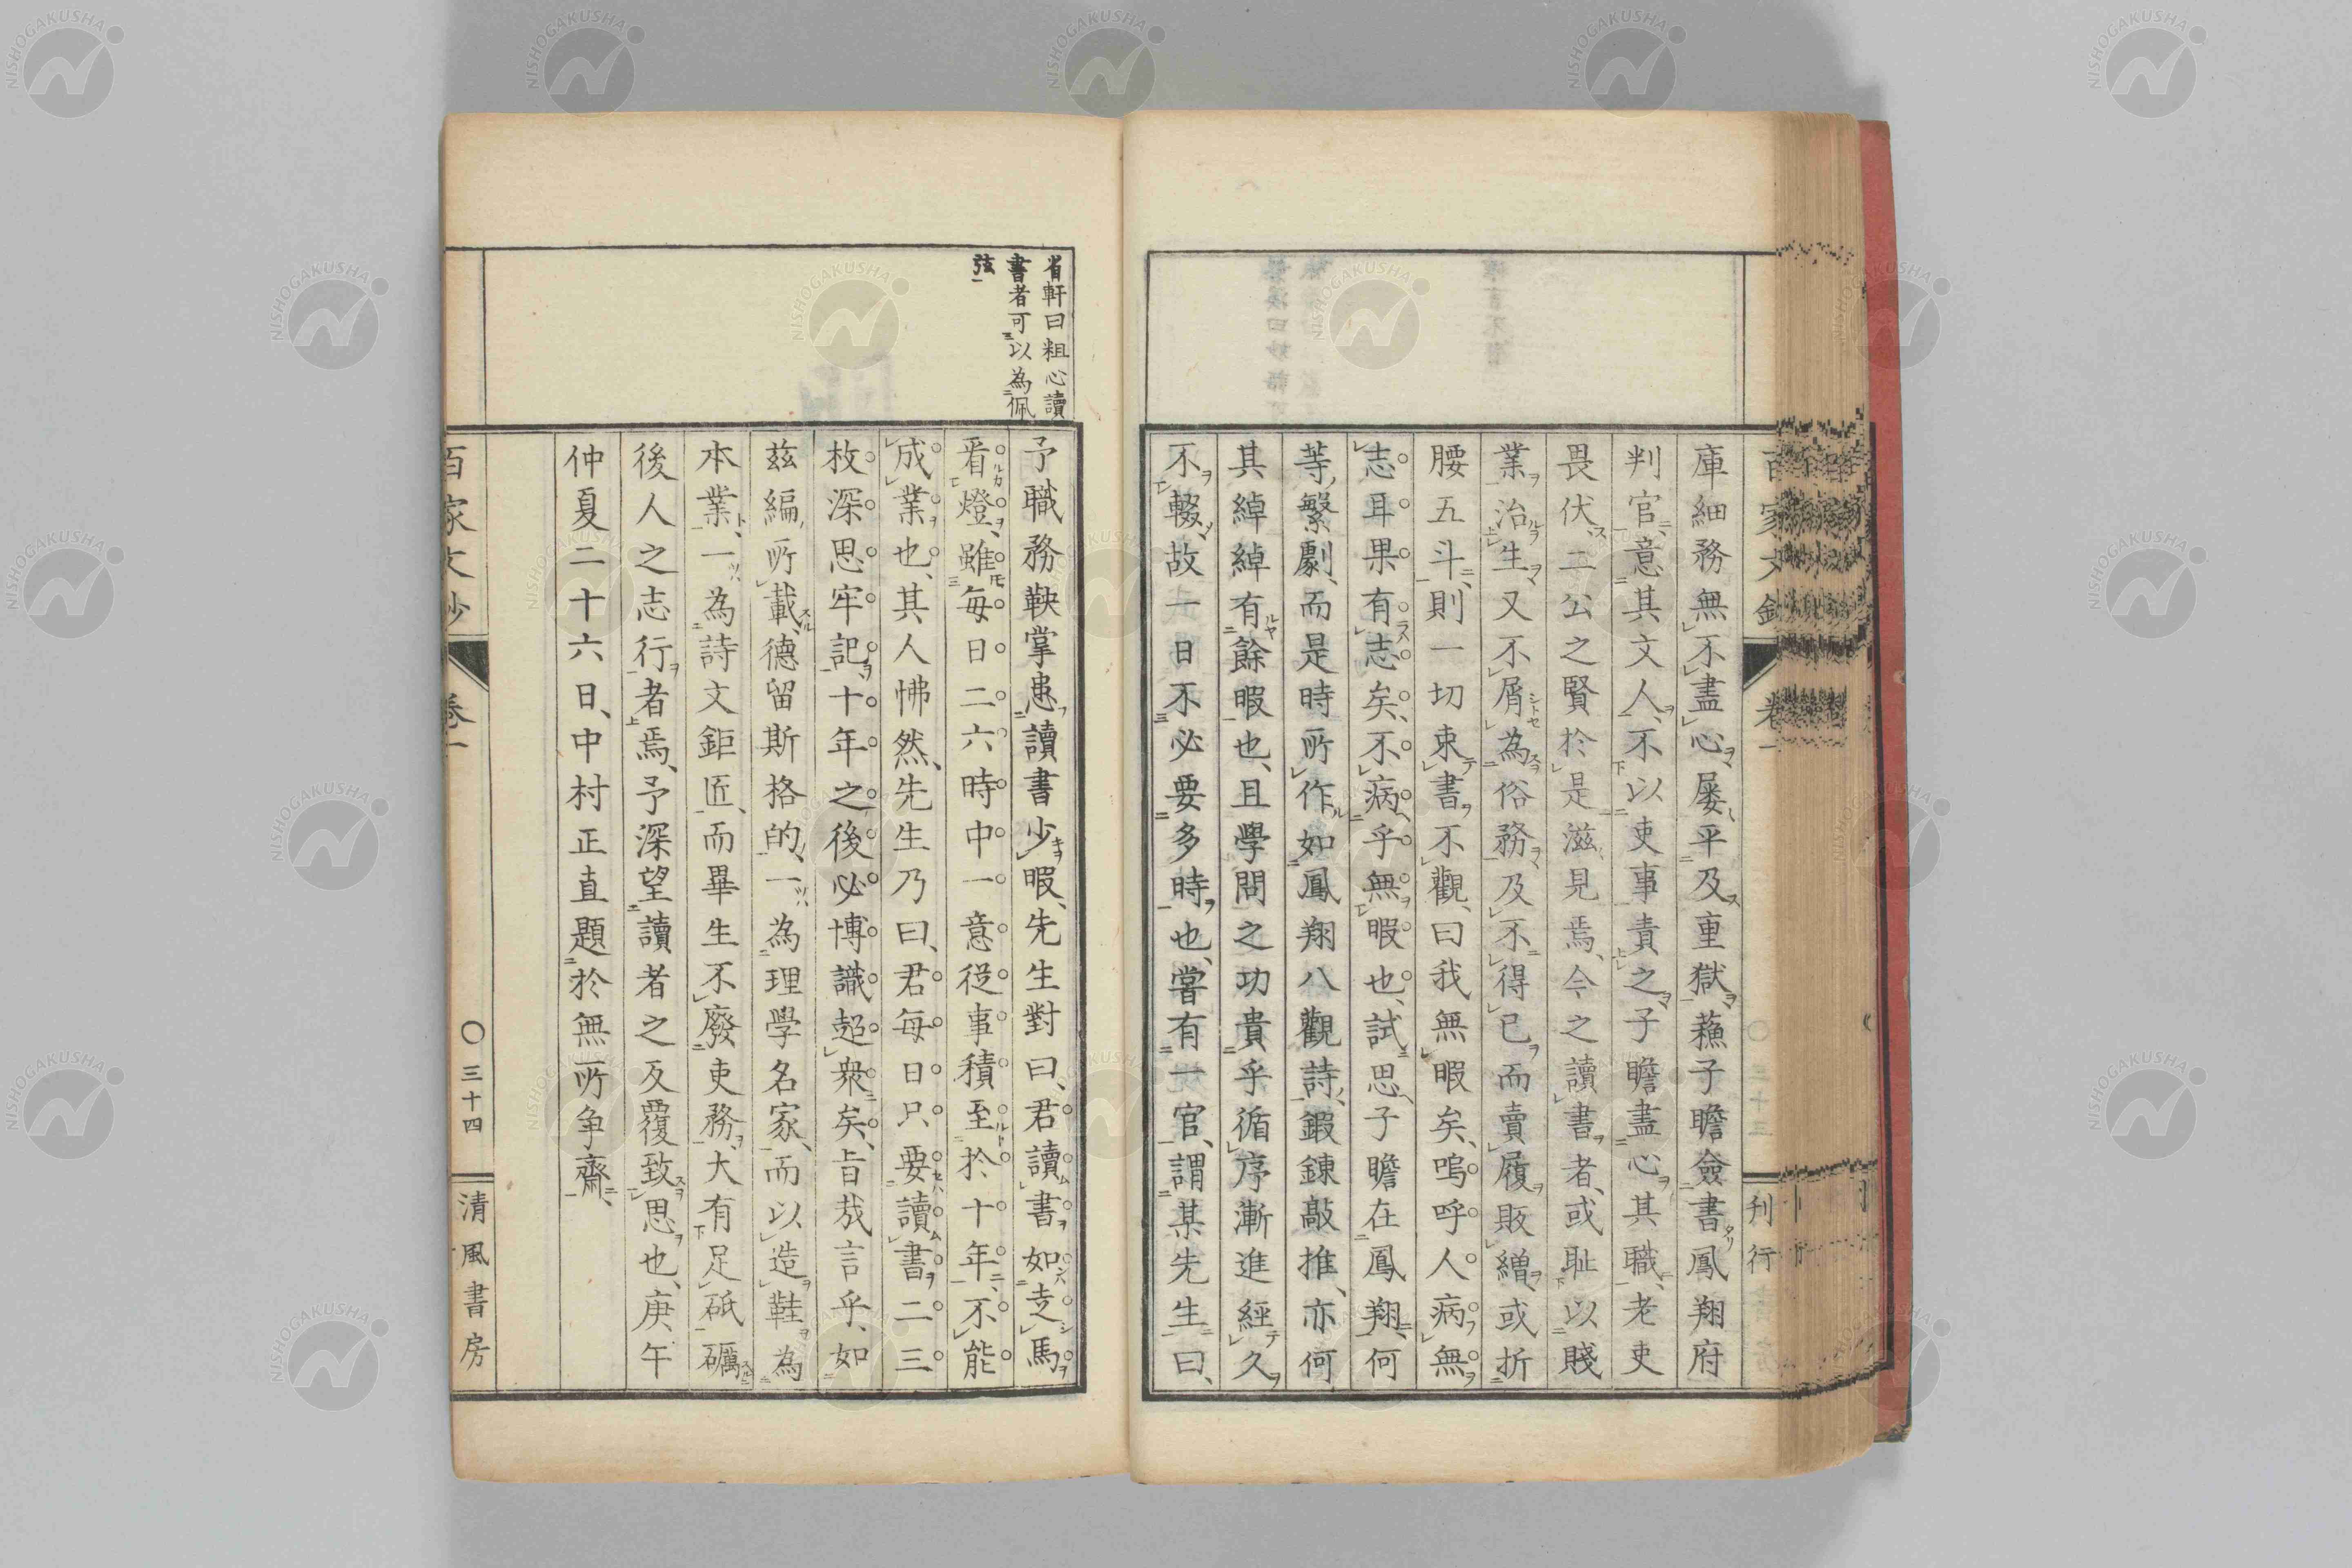 庫細務無不盡心屡平及重獄蘓子瞻僉書鳳翔府
判官意其文人不以吏事責之子瞻盡心其職老吏
畏伏二公之賢於是滋見焉今之讀書者或耻以賤
業治生又不屑為俗務及不得已而賣履販繒或折
腰五斗則一切束書不觀曰我無暇矣嗚呼人病無
志耳果有志矣不病乎無暇也試思子瞻在鳳翔何
等繁劇而是時所作如鳳翔八觀詩鍜錬敲推亦何
其綽綽有餘暇也且學問之功貴乎循序漸進經久
不輟故一日不必要多時也嘗有一官謂某先生曰
省軒曰粗心讀
書者可以為佩
弦
予職務鞅掌患讀書少暇先生對曰君讀書如走馬
看燈雖每日二六時中一意從事積至於十年不能
成業也其人怫然先生乃曰君每日只要讀書二三
枚深思牢記十年之後必博識超衆矣旨哉言乎如
茲編所載德留斯格的一為理學名家而以造鞋為
本業一為詩文鉅匠而畢生不廢吏務大有足砥礪
後人之志行者焉予深望讀者之反覆致思也庚午
仲夏二十六日中村正直題於無所争齋
百家文鈔
卷一
〇三十四
清風書房
刋行
NISHOGAKUSHA